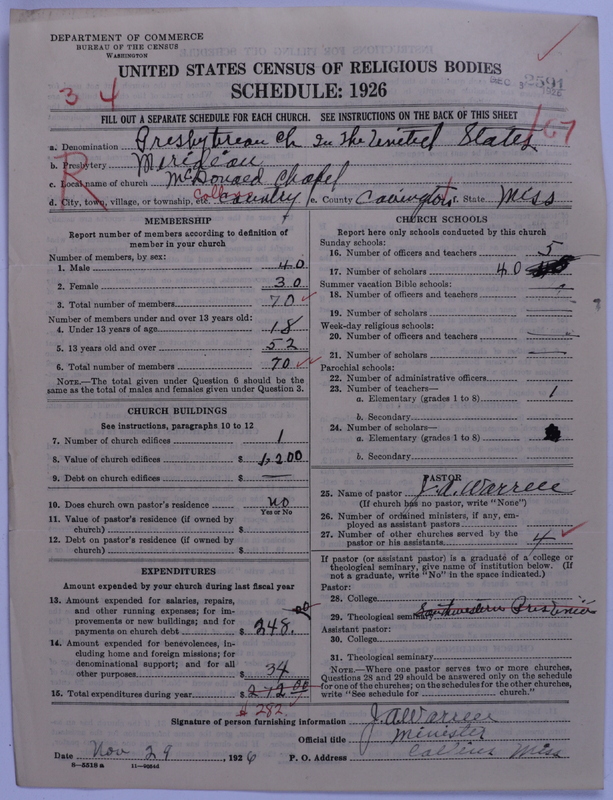 DEPARTMENT OF COMMERCE
BUREAU OF THE CENSUS
WASHINGTON
UNITED STATES CENSUS OF RELIGIOUS BODIES
SCHEDULE: 1926
3 4
2591
167
FILL OUT A SEPARATE SCHEDULE FOR EACH CHURCH. SEE INSTRUCTIONS ON THE BACK OF THIS SHEET
R
a. Denomination Presbyterean Ch In The United States
b. Presbytery Meridean
c. Local name of church McDonald Chapel
Collins
d. City, town, village, or township, etc. Country e. County Covington f. State Miss
MEMBERSHIP
Report number of members according to definition of member in your church
Number of members, by sex:
1. Male 40
2. Female 30
3. Total number of members 70
Number of members under and over 13 years old:
4. Under 13 years of age 18
5. 13 years old and over 52
6. Total number of members 70
NOTE.—The total given under Question 6 should be
same as the total of males and females given under Question 3.
CHURCH BUILDINGS
See instructions, paragraphs 10 to 12
7. Number of church edifices 1
8. Value of church edifices $ 1,200
9. Debt on church edifices $ —
10. Does church own pastor's residence no
Yes or No
11. Value of pastor's residence (if owned by
church) $
12. Debt on pastor's residence (if owned by
church) $
EXPENDITURES
Amount expended by your church during last fiscal year
13. Amount expended for salaries, repairs,
and other running expenses; for im-
provements or new buildings; and for
payments on church debt $ 248.00
14. Amount expended for benevolences, in-
cluding home and foreign missions; for
denominational support; and for all
other purposes $ 34
15. Total expenditures during year $ 272.00
$ 282.
CHURCH SCHOOLS
Report here only schools conducted by this church
Sunday schools:
16. Number of officers and teachers 5
17. Number of scholars 40
Summer vacation Bible schools:
18. Number of officers and teachers
19. Number of scholars
Week-day religious schools:
20. Number of officers and teachers
21. Number of scholars
Parochial schools:
22. Number of administrative officers
23. Number of teachers—
a. Elementary (grades 1 to 8) 1
b. Secondary
24. Number of scholars—
a. Elementary (grades 1 to 8)
b. Secondary
PASTOR
25. Name of pastor J.A. Warren
(If church has no pastor, write "None")
26. Number of ordained ministers, if any, em-
ployed as assistant pastors
27. Number of other churches served by the
pastor or his assistants 4
If pastor (or assistant pastor) is a graduate of a college or
theological seminary, give name of institution below. (If
not a graduate, write "No" in the space indicated.)
Pastor:
28. College
29. Theological seminary Southwestern
Assistant pastor:
30. College
31. Theological seminary
NOTE.—Where one pastor serves two or more churches,
Questions 28 and 29 should be answered only on the schedule
for one of the churches; on the schedules for the other churches,
write "See schedule for ........ church."
Signature of person furnishing information J.A. Warren
Official title Minister
Date Nov 29, 1926 P. O. Address Collins Miss
8-5518 a